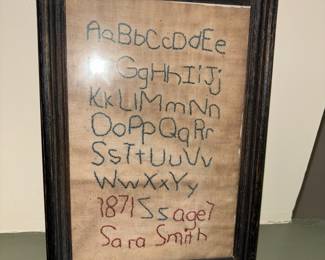 AaBbCcDdEe
GgHhIiJj
KkLlMmNn
OoPpQqRr
SsTtUuVv
WwXxYy
1871 Ss age 7
Sara Smith